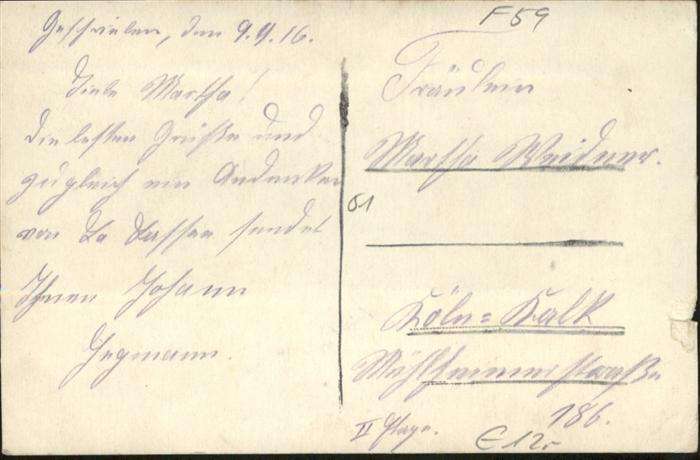 Geschrieben, den 9.9.16.
Liebe Martha!
Die besten Grüße und
zugleich ein Andenken
von La Bassee sendet
Ihnen Johann
Hegmann.
F 59
Fräulein
Martha Weidner.
61
Köln=Kalk
Mülheimerstraße
186.
II Etage.
€ 12,-